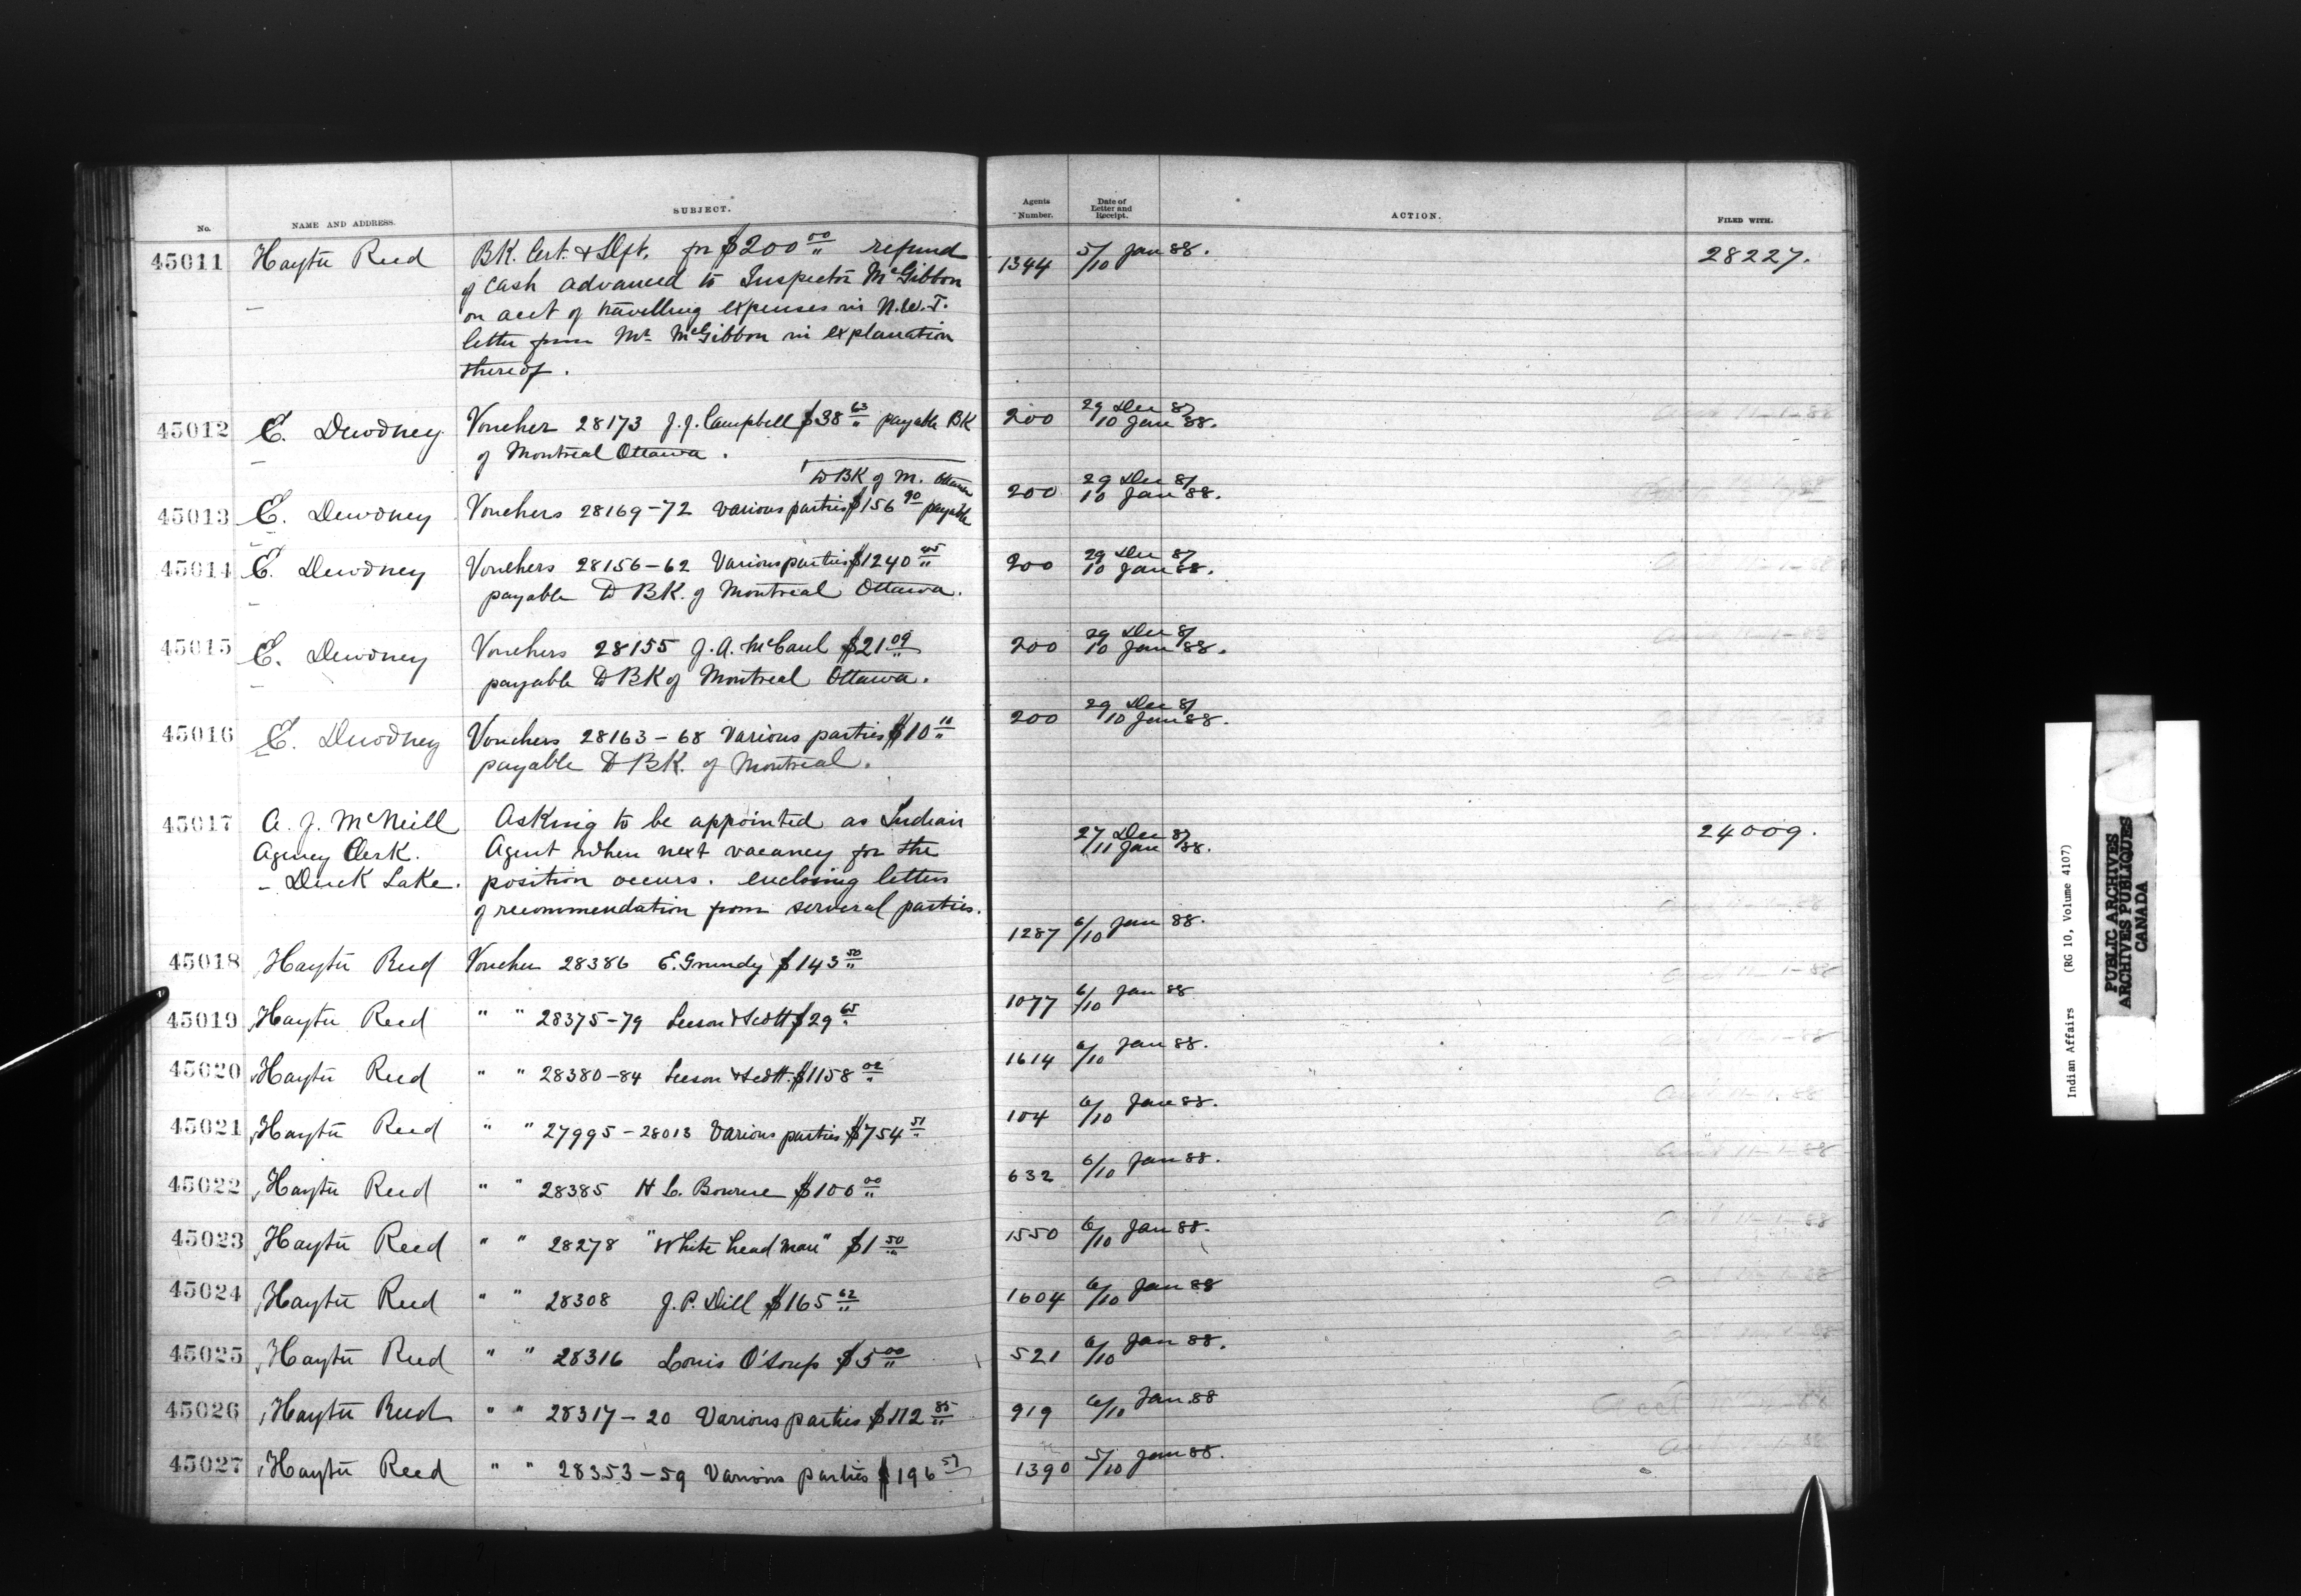 No. NAME AND ADDRESS. SUBJECT. Agents Number. Date of Letter and Receipt. ACTION. FILED WITH.
45011 Hayter Reed BK. Cert. & Dft. for $200 00 refund 1344 5/10 Jan 88. 28227.
of cash advanced to Inspector McGibbon
on acct of travelling expenses in N.W.T.
letter from Mr McGibbon in explanation
thereof.
45012 E. Dewdney Voucher 28173 J.J. Campbell $38 63 payable BK 200 29 Dec 87 10 Jan 88.
of Montreal Ottawa.
to BK of M. Ottawa
45013 E. Dewdney Vouchers 28169-72 various parties $156 90 payable 200 29 Dec 87 10 Jan 88.
45014 E. Dewdney Vouchers 28156-62 Various parties $1240 45 200 29 Dec 87 10 Jan 88.
payable to BK. of Montreal Ottawa.
45015 E. Dewdney Vouchers 28155 J.A. McCaul $21 09 200 29 Dec 87 10 Jan 88.
payable to BK of Montreal Ottawa.
45016 E. Dewdney Vouchers 28163-68 Various parties $10 200 29 Dec 87 10 Jan 88.
payable to BK. of Montreal.
45017 A. J. McNeill Asking to be appointed as Indian 27 Dec 87 11 Jan 88. 24009.
Agency Clerk. Agent when next vacancy for the
- Duck Lake. position occurs. enclosing letters
of recommendation from serveral parties.
45018 Hayter Reed Voucher 28386 E. Grundy $143 50 1287 6/10 Jan 88.
45019 Hayter Reed " " 28375-79 Leeson & Scott $29 65 1077 6/10 Jan 88
45020 Hayter Reed " " 28380-84 Leeson & Scott. $1158 02 1614 6/10 Jan 88.
45021 Hayter Reed " " 27995-28013 Various parties $754 51 104 6/10 Jan 88.
45022 Hayter Reed " " 28385 H C. Bourne $100 00 632 6/10 Jan 88.
45023 Hayter Reed " " 28278 "White head man" $1 50 1550 6/10 Jan 88.
45024 Hayter Reed " " 28308 J. P. Dill $165 62 1604 6/10 Jan 88
45025 Hayter Reed " " 28316 Louis O'Soup $5 00 521 6/10 Jan 88.
45026 Hayter Reed " " 28317-20 Various parties $112 85 919 6/10 Jan 88
45027 Hayter Reed " " 28353-59 Various parties $196 57 1390 5/10 Jan 88.
Indian Affairs (RG 10, Volume 4107)
PUBLIC ARCHIVES
ARCHIVES PUBLIQUES
CANADA